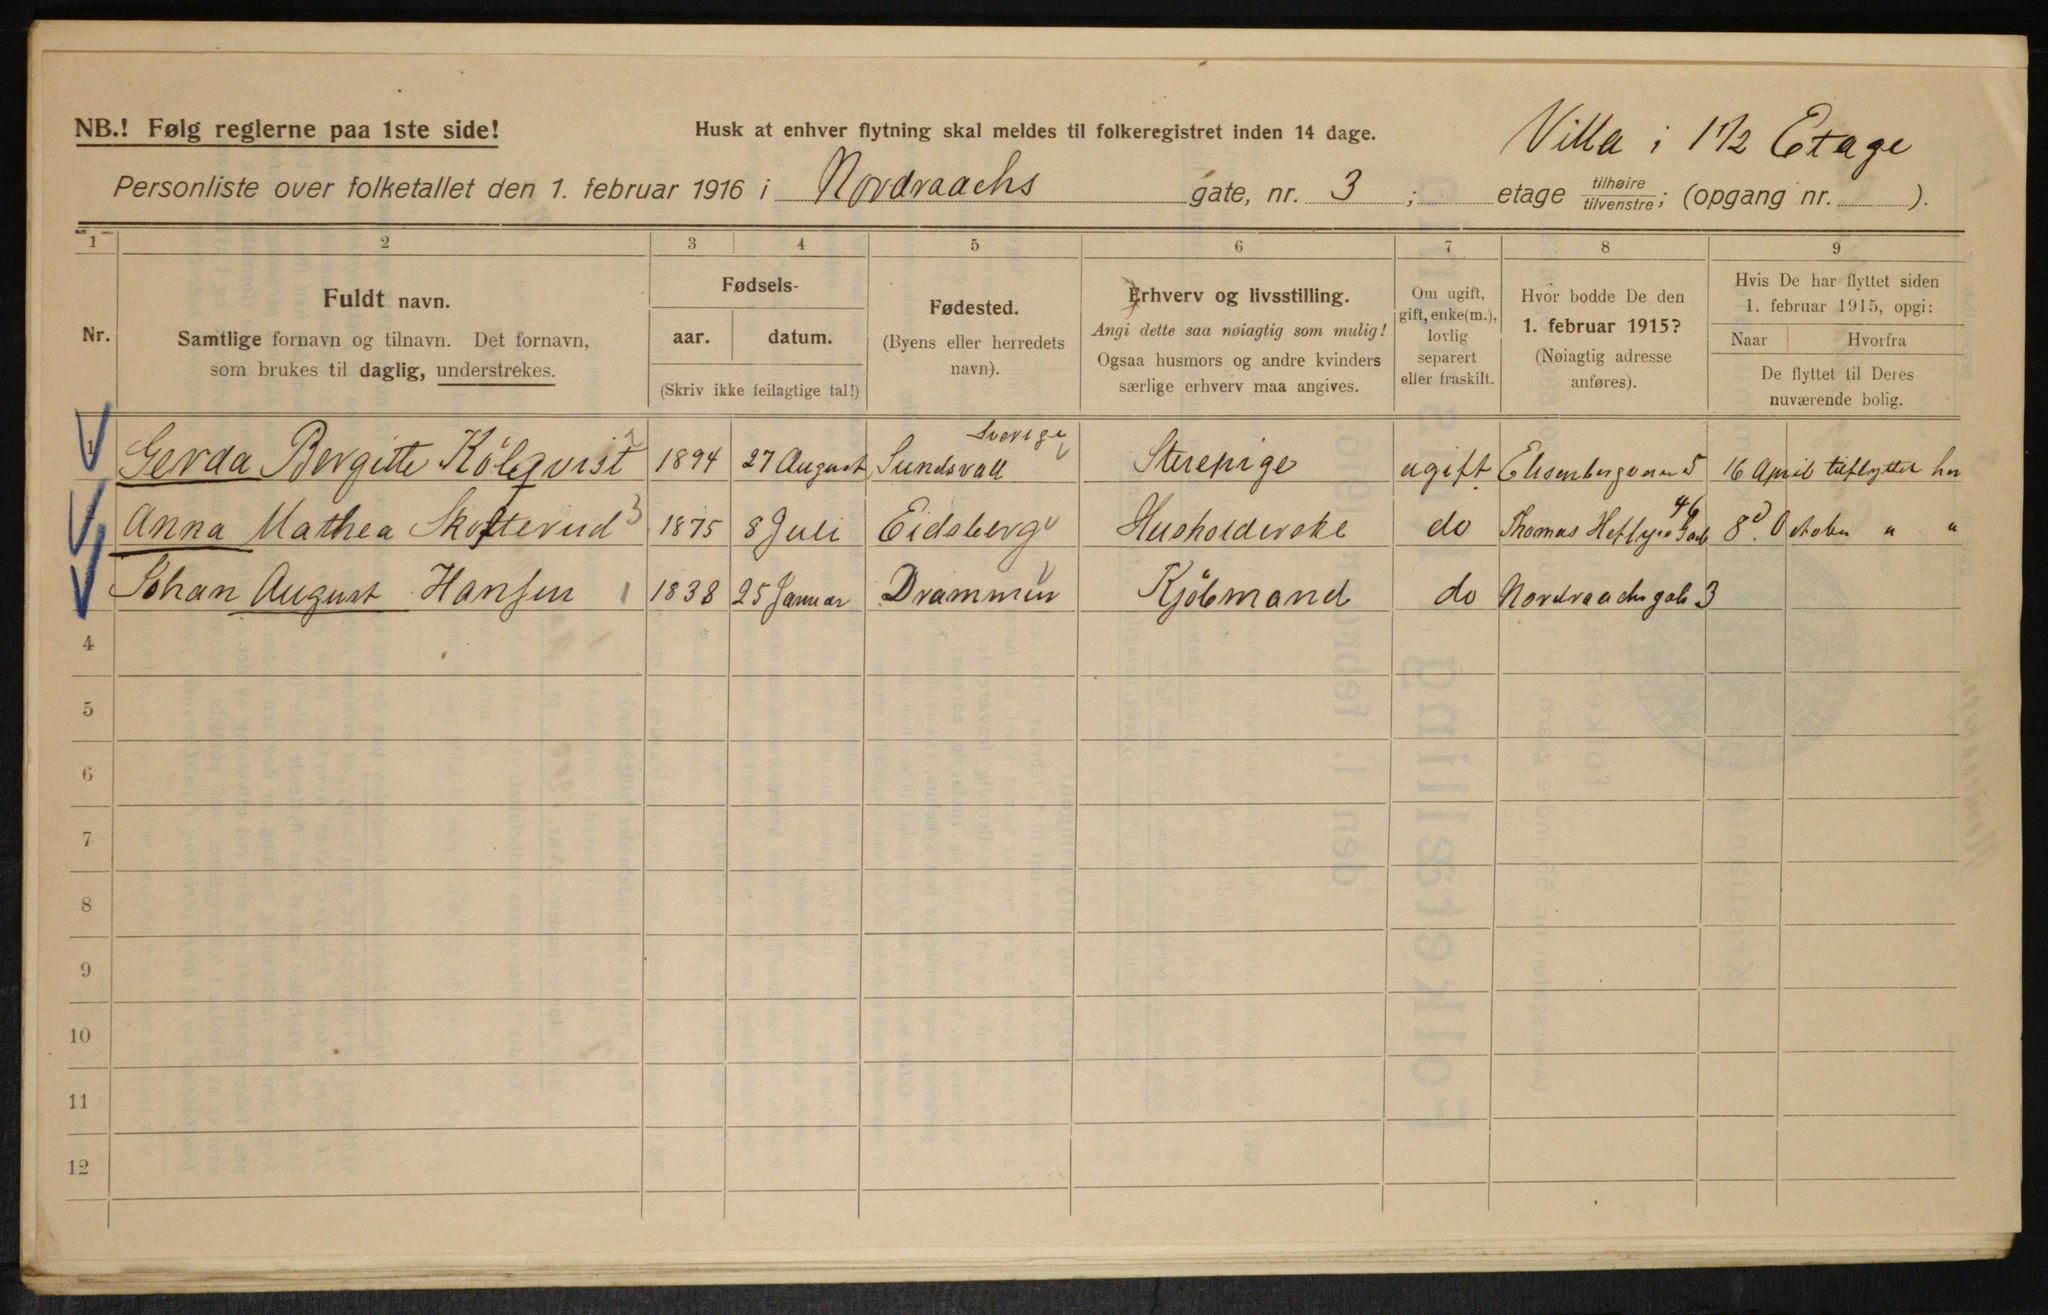 NB.! Følg reglerne paa 1ste side!
Husk at enhver flytning skal meldes til folkeregistret inden 14 dage.
Villa i 1 1/2 Etage
Personliste over folketallet den 1. februar 1916 i Nordraachs gate, nr. 3 ; etage tilhøire tilvenstre; (opgang nr. ).
1 2 3 4 5 6 7 8 9
Nr.
Fuldt navn.
Samtlige fornavn og tilnavn. Det fornavn,
som brukes til daglig, understrekes.
Fødsels-
aar. datum.
(Skriv ikke feilagtige tal!)
Fødested.
(Byens eller herredets
navn).
Erhverv og livsstilling.
Angi dette saa nøiagtig som mulig!
Ogsaa husmors og andre kvinders
særlige erhverv maa angives.
Om ugift,
gift, enke(m.),
lovlig
separert
eller fraskilt.
Hvor bodde De den
1. februar 1915?
(Nøiagtig adresse
anføres).
Hvis De har flyttet siden
1. februar 1915, opgi:
Naar Hvorfra
De flyttet til Deres
nuværende bolig.
1 Gerda Bergitte Kölqvist 2 1894 27 August Sundsvall Sverige Sterepige ugift Elisenbergveien 5 16 April tilflyttet her
Anna Mathea Skofterud 3 1875 8 Juli Eidsberg Husholderske do Thomas Heftyes Gade 46 8d October " "
Johan August Hansen 1 1838 25 Januar Drammen Kjöbmand do Nordraachsgade 3
4
5
6
7
8
9
10
11
12